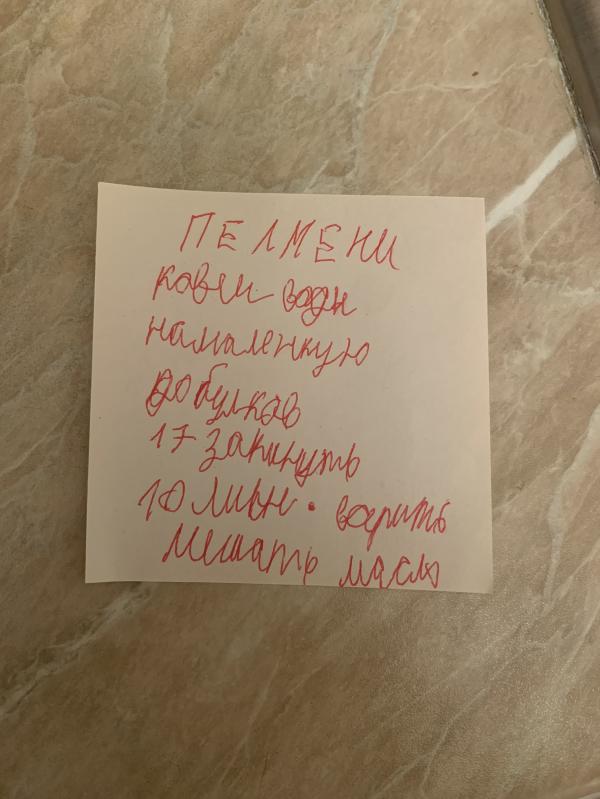 ПЕЛМЕНИ
ковш воды
намаленкую
до булков
17 закинуть
10 мин. варить
мешать масло